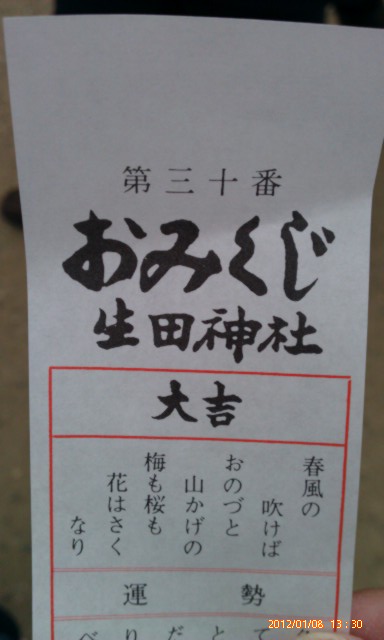 第三十番
おみくじ
生田神社
大吉
春風の
吹けば
おのづと
山かげの
梅も桜も
花はさく
なり
運勢
2012/01/08 13:30